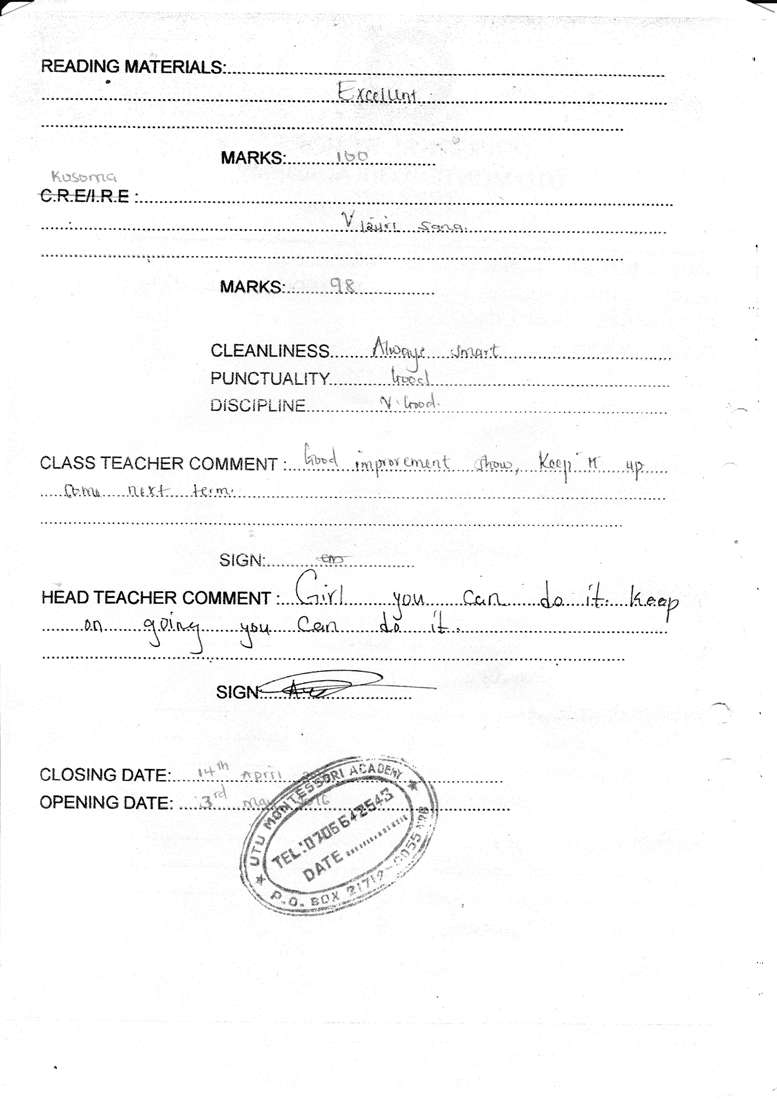 READING MATERIALS:
Excellent
MARKS: 100
Kusoma
C.R.E/I.R.E :
V sana.
MARKS: 98
CLEANLINESS Always smart
PUNCTUALITY Good
DISCIPLINE V. Good.
CLASS TEACHER COMMENT : Good improvement show, Keep it up
come next term.
SIGN:
HEAD TEACHER COMMENT : Girl you can do it. Keep
on going you can do it.
SIGN:
CLOSING DATE: 14th April
OPENING DATE: 3rd may 2016
UTU MONTESSORI ACADEMY
TEL: 0706642543
DATE
P.O. BOX 21719-0055 NRB